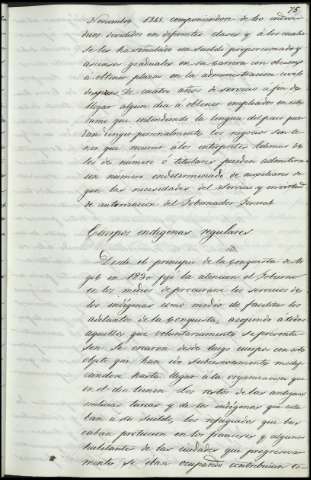 75
Noviembre 1845 comprendiendo de los individuos
divididos en diferentes clases y a los cuales
se les ha señalado un sueldo proporcionado y
ascensos graduales en su carrera con
a obtener plazas en la administracion civil
despues de cuatro años de servicio a fin de
llegar algun dia a obtener empleados en este
ramo que entendiendo la lengua del pais puedan
personalmente los negocios sin tener
que recurrir a los interpretes. Ademas de
los de número ó titulares pueden admitirse
un número indeterminado de auxiliares segun
las necesidades del servicio y
de autorizacion del Gobernador General
Cuerpos indígenas regulares
Desde el principio de la conquista de
en 1830 fijó la atencion el Gobierno
en los medios de procurarse los servicios de
los indígenas como medio de facilitar los
adelantos de la conquista, acogiendo a todos
aquellos que voluntariamente se presentasen
Se crearon desde luego cuerpos con este
objeto que han ido sucesivamente
hasta llegar a la organizacion que
en el dia tienen. Los restos de las antiguas
milicias turcas y de los indígenas que estaban
a su sueldo, los refugiados que buscaban
proteccion en los franceses y algunos
habitantes de las ciudades que progresivamente
se iban ocupando contribuian